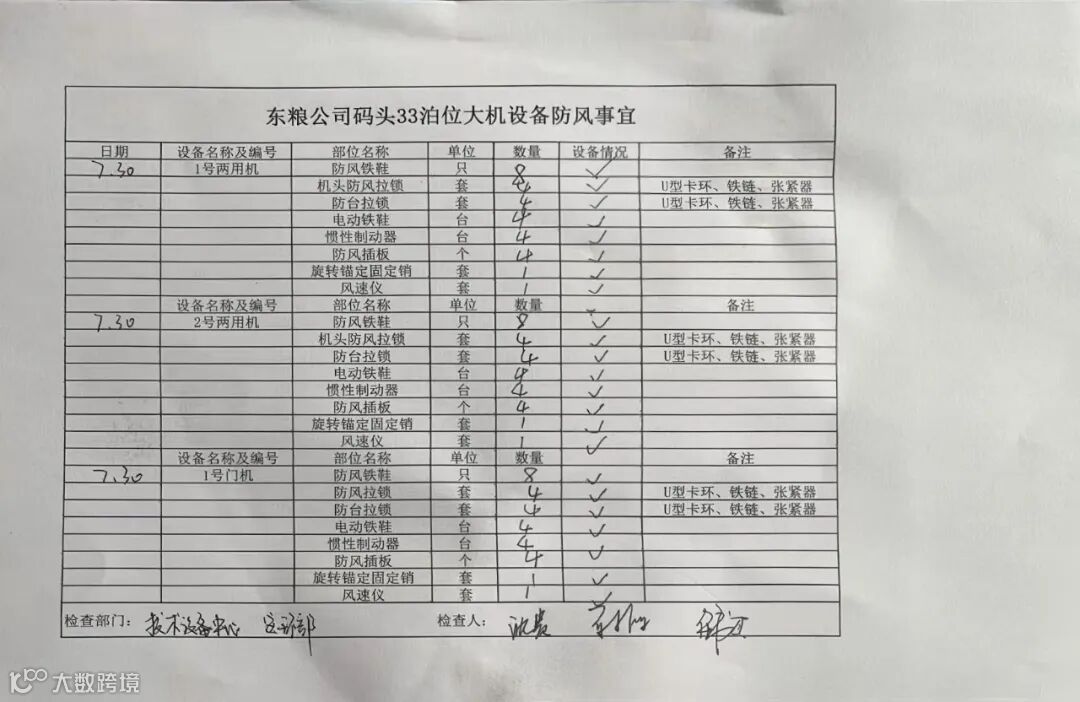 东粮公司码头33泊位大机设备防风事宜
日期 设备名称及编号 部位名称 单位 数量 设备情况 备注
7.30 1号两用机 防风铁鞋 只 8 ✓
机头防风拉锁 套 4 ✓ U型卡环、铁链、张紧器
防台拉锁 套 4 ✓ U型卡环、铁链、张紧器
电动铁鞋 台 4 ✓
惯性制动器 台 4 ✓
防风插板 个 4 ✓
旋转锚定固定销 套 1 ✓
风速仪 套 1 ✓
设备名称及编号 部位名称 单位 数量 备注
7.30 2号两用机 防风铁鞋 只 8 ✓
机头防风拉锁 套 4 ✓ U型卡环、铁链、张紧器
防台拉锁 套 4 ✓ U型卡环、铁链、张紧器
电动铁鞋 台 4 ✓
惯性制动器 台 4 ✓
防风插板 个 4 ✓
旋转锚定固定销 套 1 ✓
风速仪 套 1 ✓
设备名称及编号 部位名称 单位 数量 备注
7.30 1号门机 防风铁鞋 只 8 ✓
防风拉锁 套 4 ✓ U型卡环、铁链、张紧器
防台拉锁 套 4 ✓ U型卡环、铁链、张紧器
电动铁鞋 台 4 ✓
惯性制动器 台 4
防风插板 个 4 ✓
旋转锚定固定销 套 1 ✓
风速仪 套 1 ✓
检查部门： 技术设备中心 检查人：
大数跨境